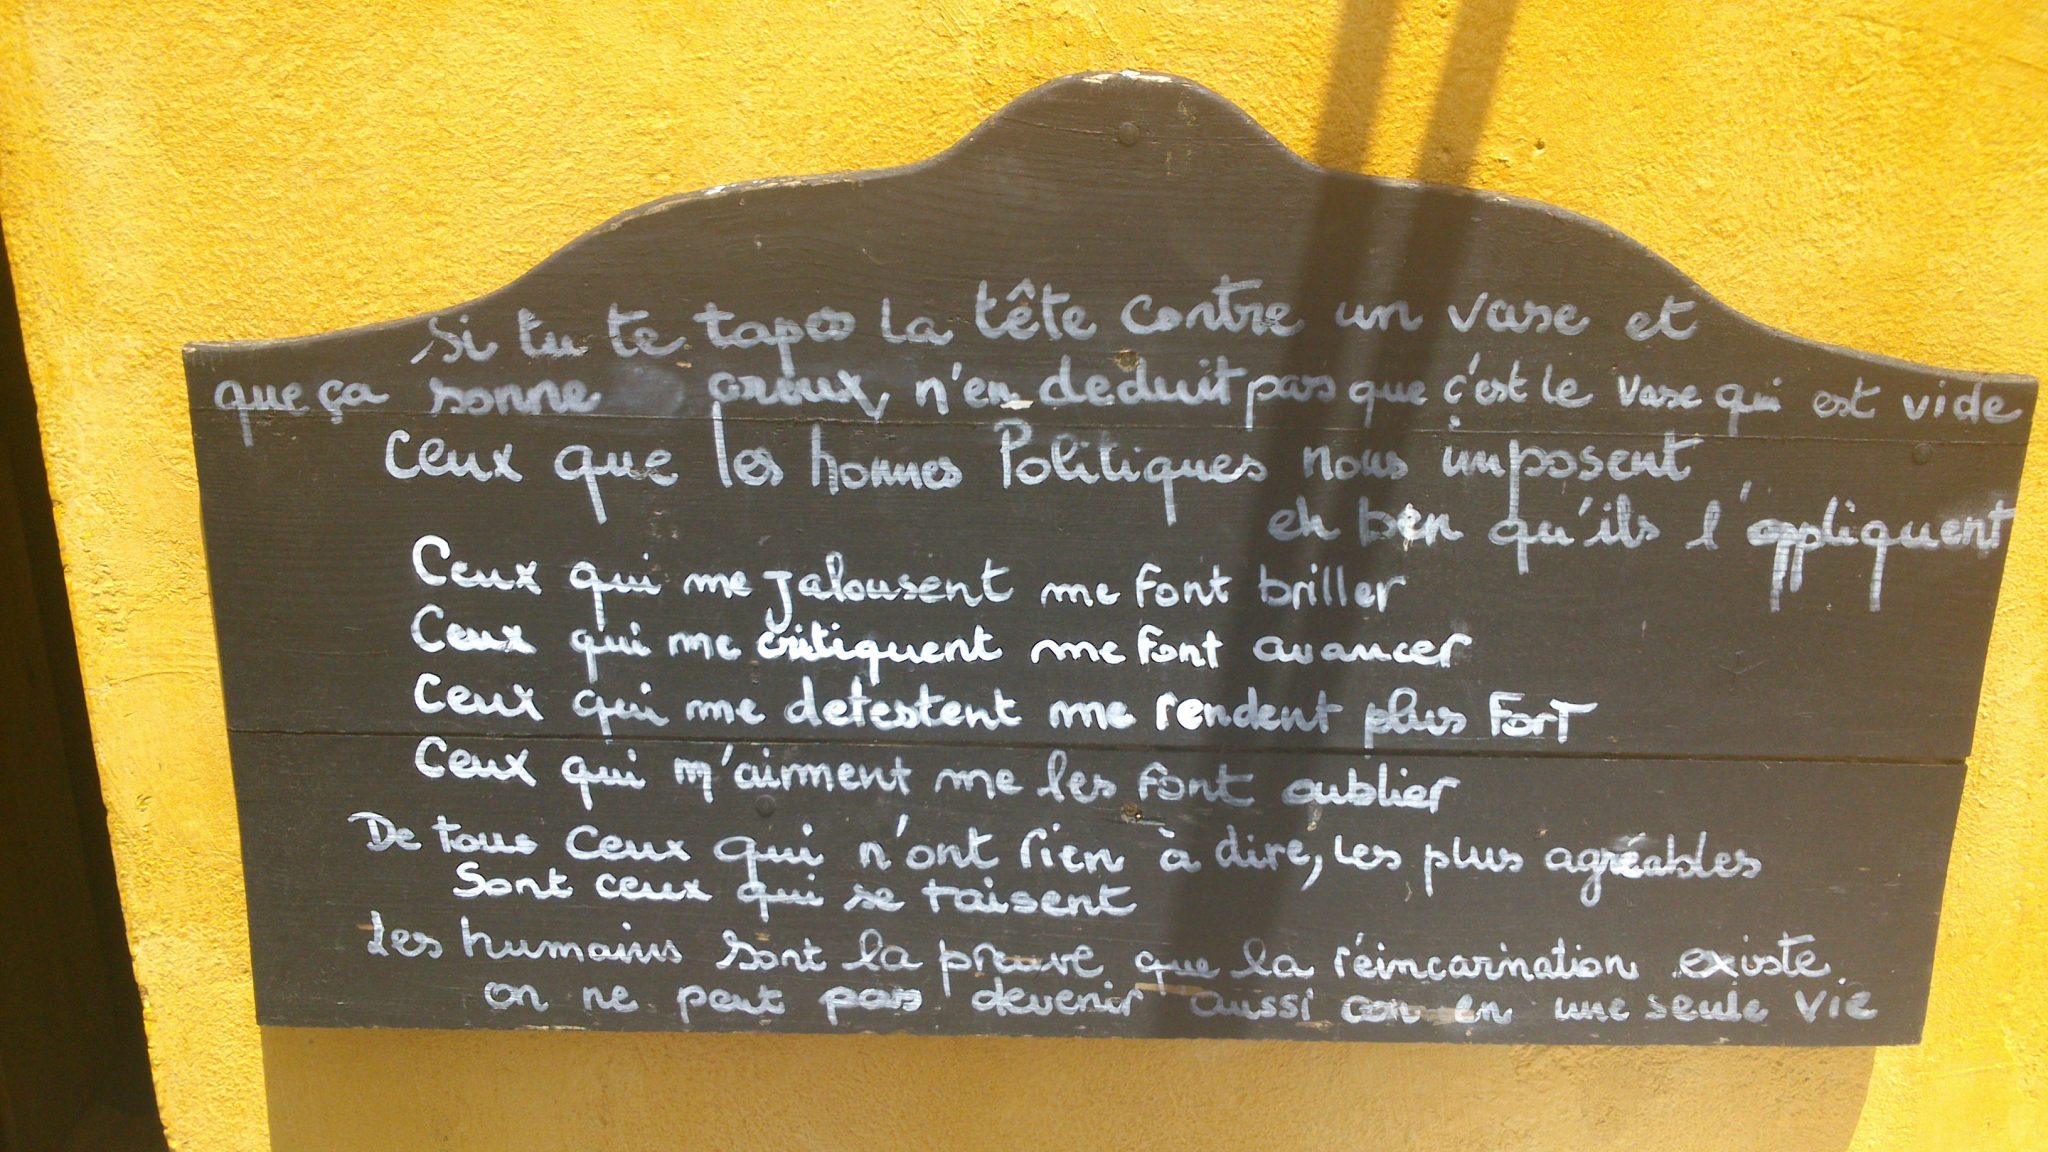 Si tu te tapes la tête contre un vase et
que ça sonne creux, n'en deduit pas que c'est le vase qui est vide
Ceux que les hommes Politiques nous imposent
eh ben qu'ils l'appliquent
Ceux qui me jalousent me font briller
Ceux qui me critiquent me font avancer
Ceux qui me detestent me rendent plus Fort
Ceux qui m'aiment me les font oublier
De tous ceux qui n'ont rien à dire, les plus agréables
Sont ceux qui se taisent
Les humains sont la preuve que la réincarnation existe
on ne peut pas devenir aussi con en une seule vie